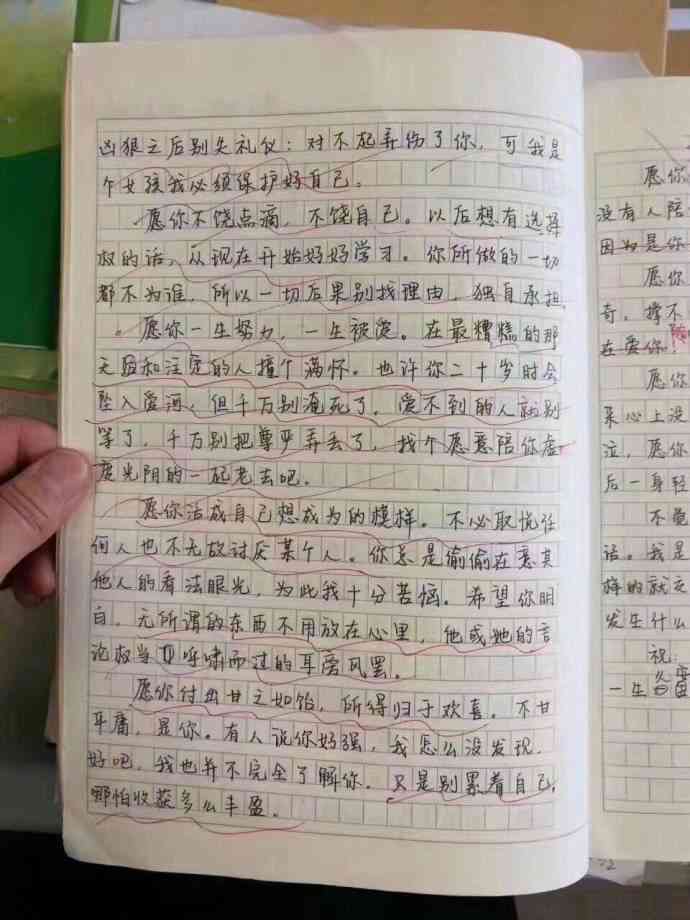 凶狠之后别失礼仪：对不起弄伤了你，可我是
个女孩我必须保护好自己。
愿你不饶点滴，不饶自己。以后想有选择
权的话，从现在开始好好学习。你所做的一切
都不为谁，所以一切后果别找理由，独自承担。
愿你一生努力，一生被爱。在最糟糕的那
天毅和注定的人撞个满怀。也许你二十岁时会
坠入爱河，但千万别淹死了，爱不到的人就别
等了，千万别把尊严弄丢了，找个愿意陪你虚
度光阴的一起老去吧。
愿你活成自己想成为的模样。不必取悦任
何人也不无故讨厌某个人。你总是偷偷在意其
他人的看法眼光，为此我十分苦恼。希望你明
白，无所谓的东西不用放在心里，他或她的言
论权当呼啸而过的耳旁风罢。
愿你付出甘之如饴，所得归于欢喜。不甘
平庸，是你。有人说你好强，我怎么没发现，
好吧，我也并不完全了解你。只是别累着自己，
哪怕收获多么丰盈。
愿你
没有人陪
因为是你
愿你
奇，撑不
在爱你
愿你
亲心上没
泣，愿你
后一身轻
不觉
话。我是
梅的就交
发生什么
祝：
一生